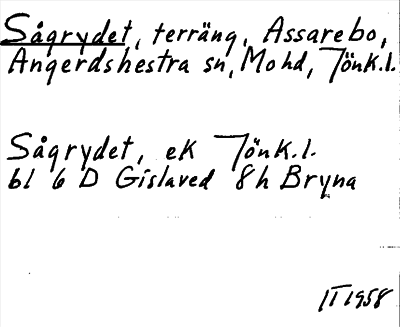 Sågrydet, terräng, Assarebo,
Angerdshestra sn, Mohd, Jönk.l.
Sågrydet, ek Jönk.l.
bl 6 D Gislaved 8h Bryna
IT 1958